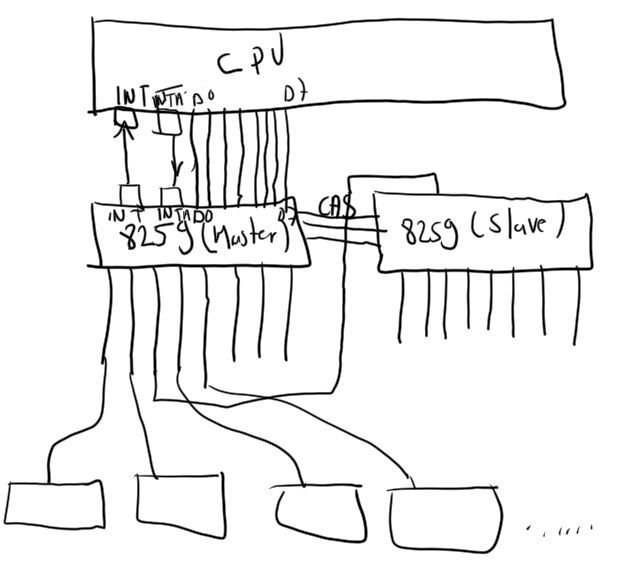 CPU
INT INTA D0 D7
INT INTA D0 D7
8259 (Master)
CAS
8259 (Slave)